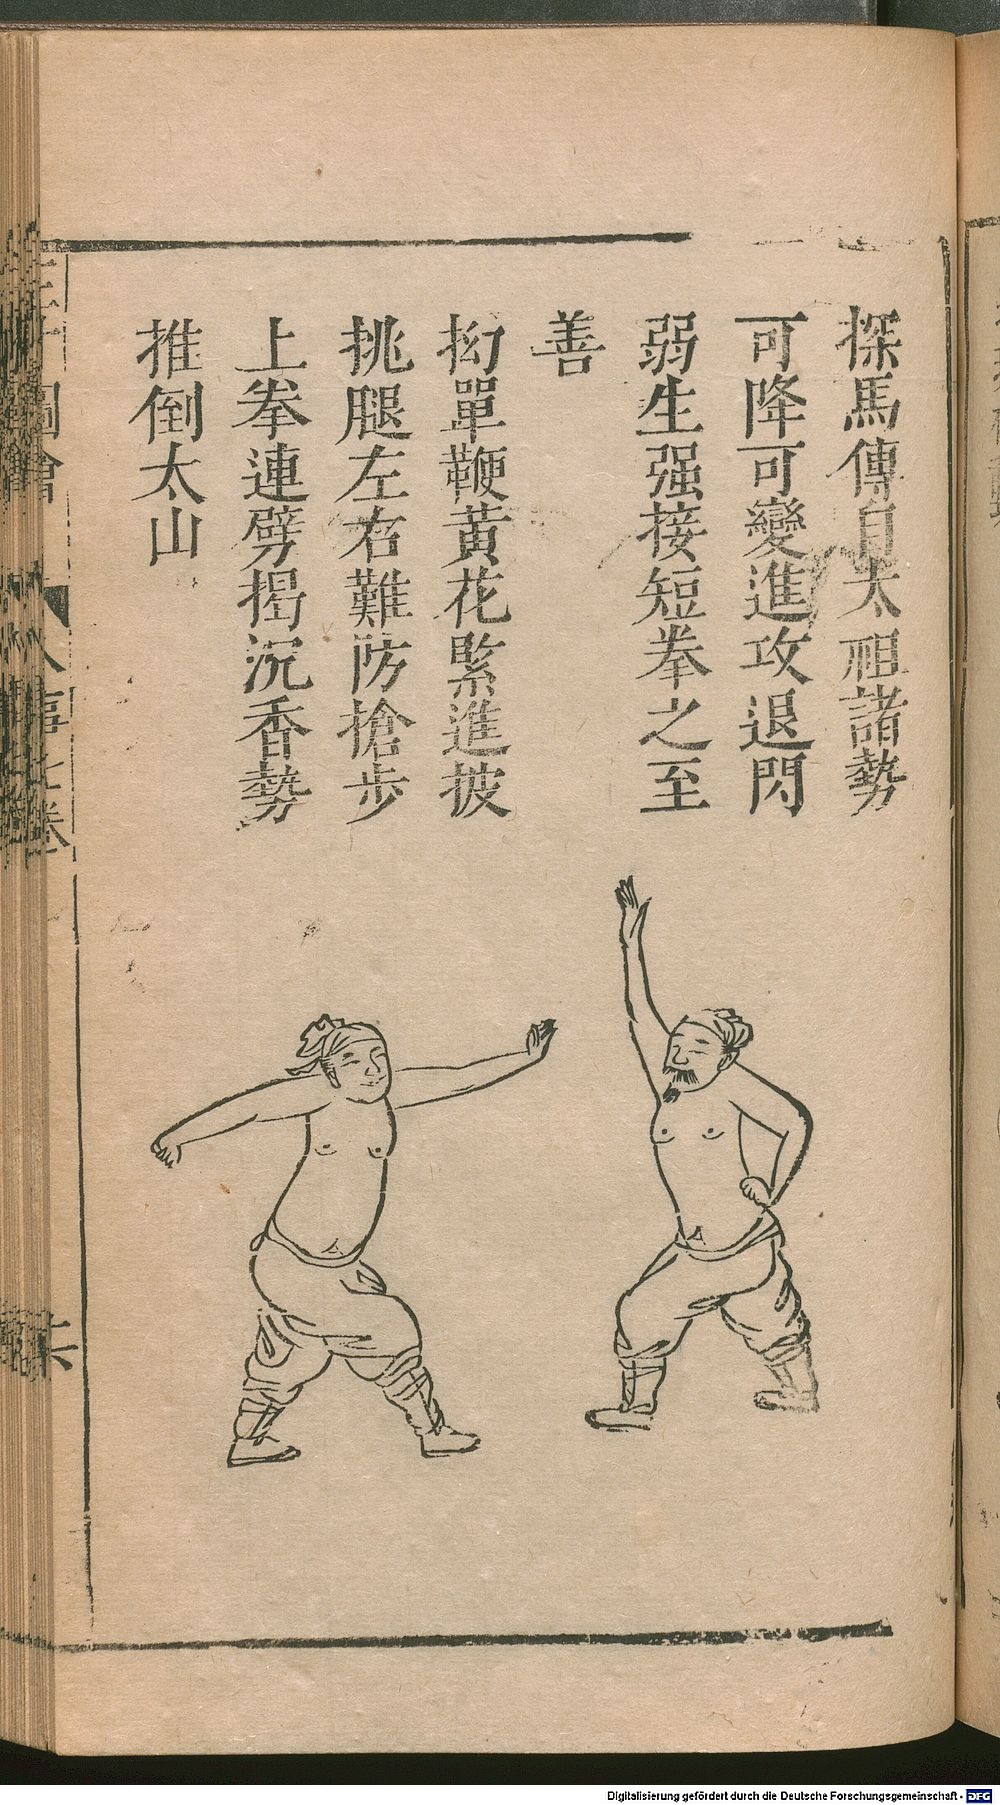 探馬傳自太祖諸勢
可降可變進攻退閃
弱生强接短拳之至
善
拗單鞭黄花緊進披
挑腿左右難防搶步
上拳連劈揭沉香勢
推倒太山
圖會 人事七卷
Digitalisierung gefördert durch die Deutsche Forschungsgemeinschaft - DFG